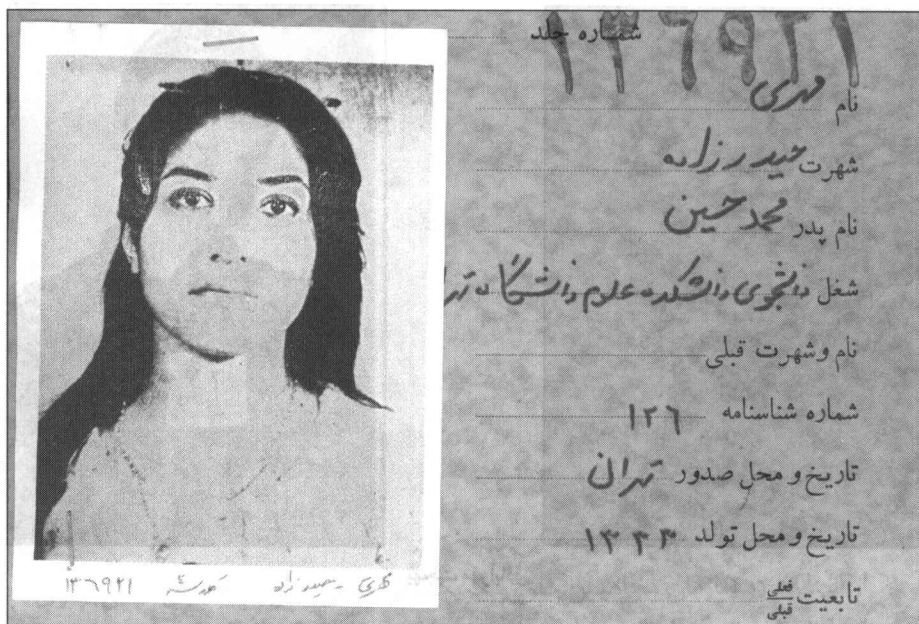 شماره جلد ۱۳۶۹۲۱
نام مهری
شهرت حیدرزاده
نام پدر محمدحسین
شغل دانشجوی دانشکده علوم دانشگاه تهرا
نام و شهرت قبلی
شماره شناسنامه ۱۲۶
تاریخ و محل صدور تهران
تاریخ و محل تولد ۱۳۳۳
تابعیت فعلی قبلی
مهری حیدرزاده ۱۳۶۹۲۱